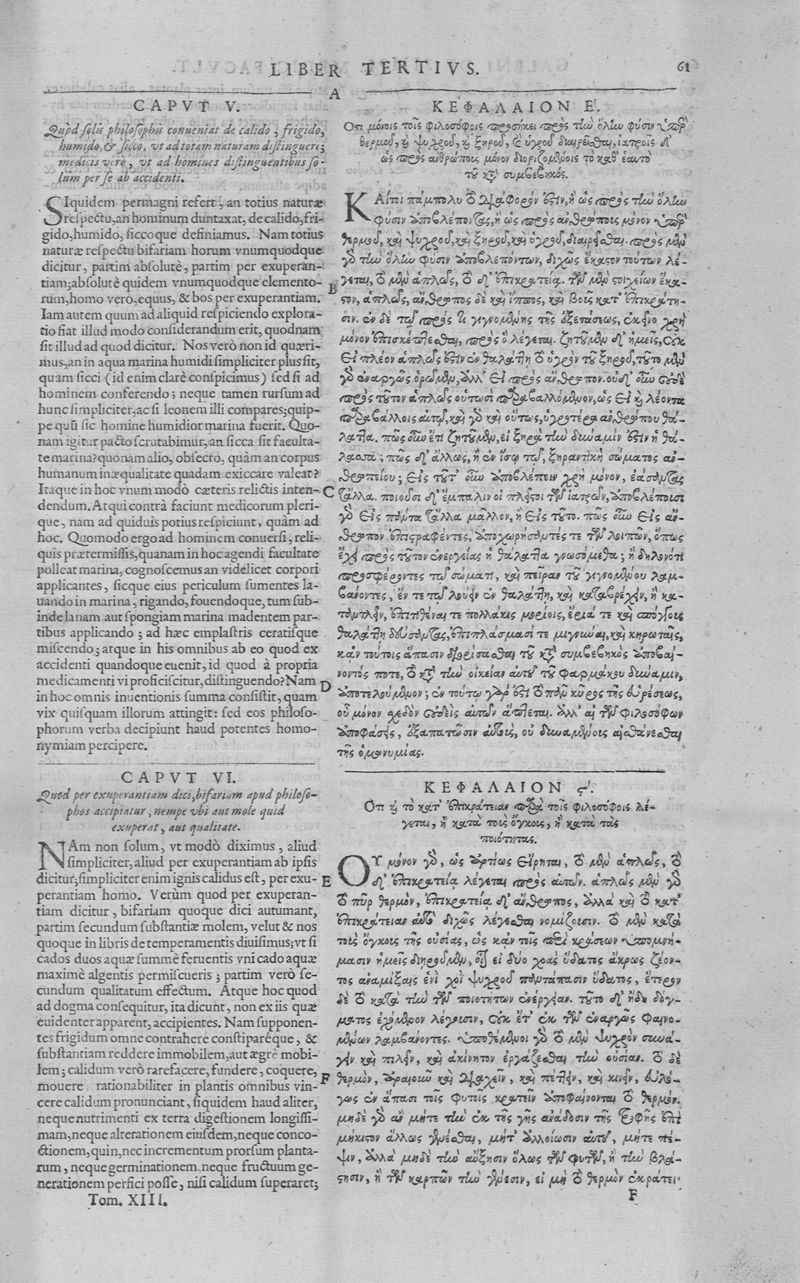 LIBER TERTIVS.
61
A
CAPVT V.
Quòd solis philosophis conueniat de calido, frigido,
humido, & sicco, vt ad totam naturam distingueri;
medicis verò, vt ad homines distinguentibus so-
lùm per se ab accidenti.
SIquidem permagni refert, an totius naturæ
respectu, an hominum duntaxat, de calido, fri-
gido, humido, siccoque definiamus. Nam totius
naturæ respectu bifariam horum vnumquodque
dicitur, partim absolutè, partim per exuperan-
tiam; absolutè quidem vnumquodque elemento-
rum, homo verò, equus, & bos per exuperantiam.
Iam autem quum ad aliquid respiciendo explora-
tio fiat illud modò considerandum erit, quodnam
sit illud ad quod dicitur. Nos verò non id quæri-
mus, an in aqua marina humidi simpliciter plus sit,
quam sicci (id enim clarè conspicimus) sed si ad
hominem conferendo; neque tamen rursum ad
hunc simpliciter, ac si leonem illi compares; quip-
pe quũ sic homine humidior marina fuerit. Quo-
nam igitur pacto scrutabimur, an sicca sit faculta-
te marina? quonam alio, obsecro, quàm an corpus
humanum inæqualitate quadam exiccare valeat?
Itaque in hoc vnum modò cæteris relictis inten-
dendum. Atqui contrà faciunt medicorum pleri-
que, nam ad quiduis potius respiciunt, quàm ad
hoc. Quomodo ergo ad hominem conuersi, reli-
quis prætermissis, quanam in hoc agendi facultate
polleat marina, cognoscemus an videlicet corpori
applicantes, sicque eius periculum sumentes la-
uando in marina, rigando, fouendoque, tum sub-
inde lanam aut spongiam marina madentem par-
tibus applicando; ad hæc emplastris ceratisque
miscendo; atque in his omnibus ab eo quod ex
accidenti quandoque euenit, id quod à propria
medicamenti vi proficiscitur, distinguendo? Nam
in hoc omnis inuentionis summa consistit, quam
vix quisquam illorum attingit: sed eos philoso-
phorum verba decipiunt haud potentes homo-
nymiam percipere.
CAPVT VI.
Quod per exuperantiam dici, bifariam apud philoso-
phos accipiatur, nempe vbi aut mole quid
exuperat, aut qualitate.
NAm non solum, vt modò diximus, aliud
simpliciter, aliud per exuperantiam ab ipsis
dicitur; simpliciter enim ignis calidus est, per exu-
perantiam homo. Verùm quod per exuperan-
tiam dicitur, bifariam quoque dici autumant,
partim secundum substantiæ molem, velut & nos
quoque in libris de temperamentis diuisimus; vt si
cados duos aquæ summè feruentis vni cado aquæ
maximè algentis permiscueris; partim verò se-
cundum qualitatum effectum. Atque hoc quod
ad dogma consequitur, ita dicunt, non ex iis quæ
euidenter apparent, accipientes. Nam supponen-
tes frigidum omne contrahere constiparéque, &
substantiam reddere immobilem, aut ægrè mobi-
lem; calidum verò rarefacere, fundere, coquere,
mouere rationabiliter in plantis omnibus vin-
cere calidum pronunciant, siquidem haud aliter,
neque nutrimenti ex terra digestionem longissi-
mam, neque alterationem eiusdem, neque conco-
ctionem, quin, nec incrementum prorsum planta-
rum, neque germinationem neque fructuum ge-
nerationem perfici posse, nisi calidum superaret;
Tom. XIII.
B
C
D
E
F
ΚΕΦΑΛΑΙΟΝ Ε΄.
Ὅτι μόνοις τοῖς φιλοσόφοις προσήκει πρὸς τὴν ὅλην φύσιν ὑπὲρ
θερμοῦ, καὶ ψυχροῦ, καὶ ξηροῦ, καὶ ὑγροῦ διαιρεῖσθαι, ἰατροῖς δ᾽
ὡς πρὸς ἀνθρώπους μόνον διοριζομένοις τὸ καθ᾽ ἑαυτὸ
τοῦ κατὰ συμβεβηκός.
ΚΑίτοι πάμπολυ τὸ διάφορόν ἐστιν, ἢ ὡς πρὸς τὴν ὅλην
φύσιν ἀποβλέποντας, ἢ ὡς πρὸς ἀνθρώπους μόνον ὑπὲρ
θερμοῦ, καὶ ψυχροῦ, καὶ ξηροῦ, καὶ ὑγροῦ, διαιρεῖσθαι. πρὸς μὲν
γὰρ τὴν ὅλην φύσιν ἀποβλεπόντων, διχῶς ἕκαστον τούτων λέ-
γεται, τὸ μὲν ἁπλῶς, τὸ δ᾽ ἐπικρατείᾳ. τῶν μὲν στοιχείων ἕκα-
στον, ἁπλῶς, ἄνθρωπος δὲ καὶ ἵππος, καὶ βοῦς κατ᾽ ἐπικράτη-
σιν. ἐν δὲ τῷ πρός τι γιγνομένης τῆς ἐξετάσεως, ἐκεῖνο χρὴ
μόνον ἐπισκέπτεσθαι, πρὸς ὃ λέγεται. ζητοῦμεν δ᾽ ἡμεῖς, οὐκ
εἰ πλέον ἁπλῶς ἐστὶν ἐν θαλάττῃ τὸ ὑγρὸν τοῦ ξηροῦ, τοῦτο μὲν
γὰρ ἐναργῶς ὁρῶμεν, ἀλλ᾽ εἰ πρὸς ἄνθρωπον. οὐ δ᾽ οὖν οὐδὲ
πρὸς τοῦτον ἁπλῶς οὑτωσὶ παραβαλλόμενον, ὡς εἰ καὶ λέοντα
παραβάλλοις αὐτῷ, καὶ γὰρ καὶ οὕτως, ὑγροτέρα ἀνθρώπου θά-
λαττα. πῶς οὖν ἔτι ζητοῦμεν, εἰ ξηρὰ τὴν δύναμιν ἐστὶν ἡ θά-
λαττα; πῶς δ᾽ ἄλλως, ἢ ἐν ἴσῳ τῳ, ξηραντικὴ σώματος ἀν-
θρωπείου; εἰς τοῦτ᾽ οὖν ἀποβλέπειν χρὴ μόνον, ἐάσαντας
τἆλλα. ποιοῦσι δ᾽ ἔμπαλιν οἱ πλεῖστοι τῶν ἰατρῶν, ἀποβλέπουσι
γὰρ εἰς πάντα τἆλλα μᾶλλον, ἢ εἰς τοῦτο. πῶς οὖν εἰς ἄν-
θρωπον ἐπιστραφέντες, ἀποχωρήσαντές τε τῶν λοιπῶν, ὅπως
ἔχει πρὸς τοῦτον ἐνεργείας ἡ θάλαττα γνωσόμεθα; ἢ δηλονότι
προσφέροντες τῷ σώματι, καὶ πεῖραν τοῦ γιγνομένου λαμ-
βάνοντες, ἔν τε τῷ λούειν ἐν θαλάττῃ, καὶ καταβρέχειν, ἢ κα-
ταντλεῖν, ἐπιτιθέναι τε πολλάκις μορίοις, ἔριά τε καὶ σπόγγους
θαλάττῃ δεύσαντας, ἐπιπλάσμασί τε μιγνύναι, καὶ κηρωταῖς,
κἀν τούτοις ἅπασιν διορίσασθαι τοῦ κατὰ συμβεβηκὸς ἀποβαί-
νοντός ποτε, τὸ κατὰ τὴν οἰκείαν αὐτοῦ τοῦ φαρμάκου δύναμιν,
ἀποτελούμενον; ἐν τούτῳ γάρ ἐστι τὸ πᾶν κῦρος τῆς εὑρέσεως,
οὗ μόνον σχεδὸν οὐδεὶς αὐτῶν ἅπτεται. ἀλλ᾽ αἱ τῶν φιλοσόφων
ἀποφάσεις, ἐξαπατῶσιν αὐτοὺς, οὐ δυναμένους αἰσθάνεσθαι
τῆς ὁμωνυμίας.
ΚΕΦΑΛΑΙΟΝ ϛ΄.
Ὅτι καὶ τὸ κατ᾽ ἐπικράτειαν παρὰ τοῖς φιλοσόφοις λέ-
γεται, ἢ κατὰ τοὺς ὄγκους, ἢ κατὰ τὰς
ποιότητας.
ΟΥ μόνον γὰρ, ὡς ἀρτίως εἴρηται, τὸ μὲν ἁπλῶς, τὸ
δ᾽ ἐπικρατείᾳ λέγεται πρὸς αὐτῶν. ἁπλῶς μὲν γὰρ
τὸ πῦρ θερμὸν, ἐπικρατείᾳ δ᾽ ἄνθρωπος, ἀλλὰ καὶ τὸ κατ᾽
ἐπικράτειαν αὐτὸ διχῶς λέγεσθαι νομίζουσιν. τὸ μὲν κατὰ
τοὺς ὄγκους τῆς οὐσίας, ὡς κἀν τοῖς περὶ κράσεων ὑπομνή-
μασιν ἡμεῖς διῃρούμεθα, οἷον εἰ δύο χοὰς ὕδατος ἄκρως ζέον-
τος ἀναμίξαις ἑνὶ χοῒ ψυχροῦ παντάπασιν ὕδατος, ἕτερον
δὲ τὸ κατὰ τὴν τῶν ποιοτήτων ἐνέργειαν. τοῦτο δ᾽ ἤδη δόγ-
ματος ἐχόμενον λέγουσιν, οὐκ ἔτ᾽ ἐκ τῶν ἐναργῶς φαινο-
μένων λαμβάνοντες. ὑποθέμενοι γὰρ τὸ μὲν ψυχρὸν συνά-
γειν καὶ πιλεῖν, καὶ ἀκίνητον ἐργάζεσθαι τὴν οὐσίαν. τὸ δὲ
θερμὸν, ἀραιοῦν καὶ διαχεῖν, καὶ πέττειν, καὶ κινεῖν, εὐλό-
γως ἐν ἅπασι τοῖς φυτοῖς κρατεῖν ἀποφαίνονται τὸ θερμόν.
μηδὲ γὰρ ἂν μήτε τὴν ἐκ τῆς γῆς ἀνάδοσιν τῆς τροφῆς ἐπὶ
μήκιστον ἄλλως γενέσθαι, μήτ᾽ ἀλλοίωσιν αὐτῆς, μήτε πέ-
ψιν, ἀλλὰ μηδὲ τὴν αὔξησιν ὅλως τῶν φυτῶν, ἢ τὴν βλά-
στησιν, ἢ τῶν καρπῶν τὴν γένεσιν, εἰ μὴ τὸ θερμὸν ἐκράτει·
F